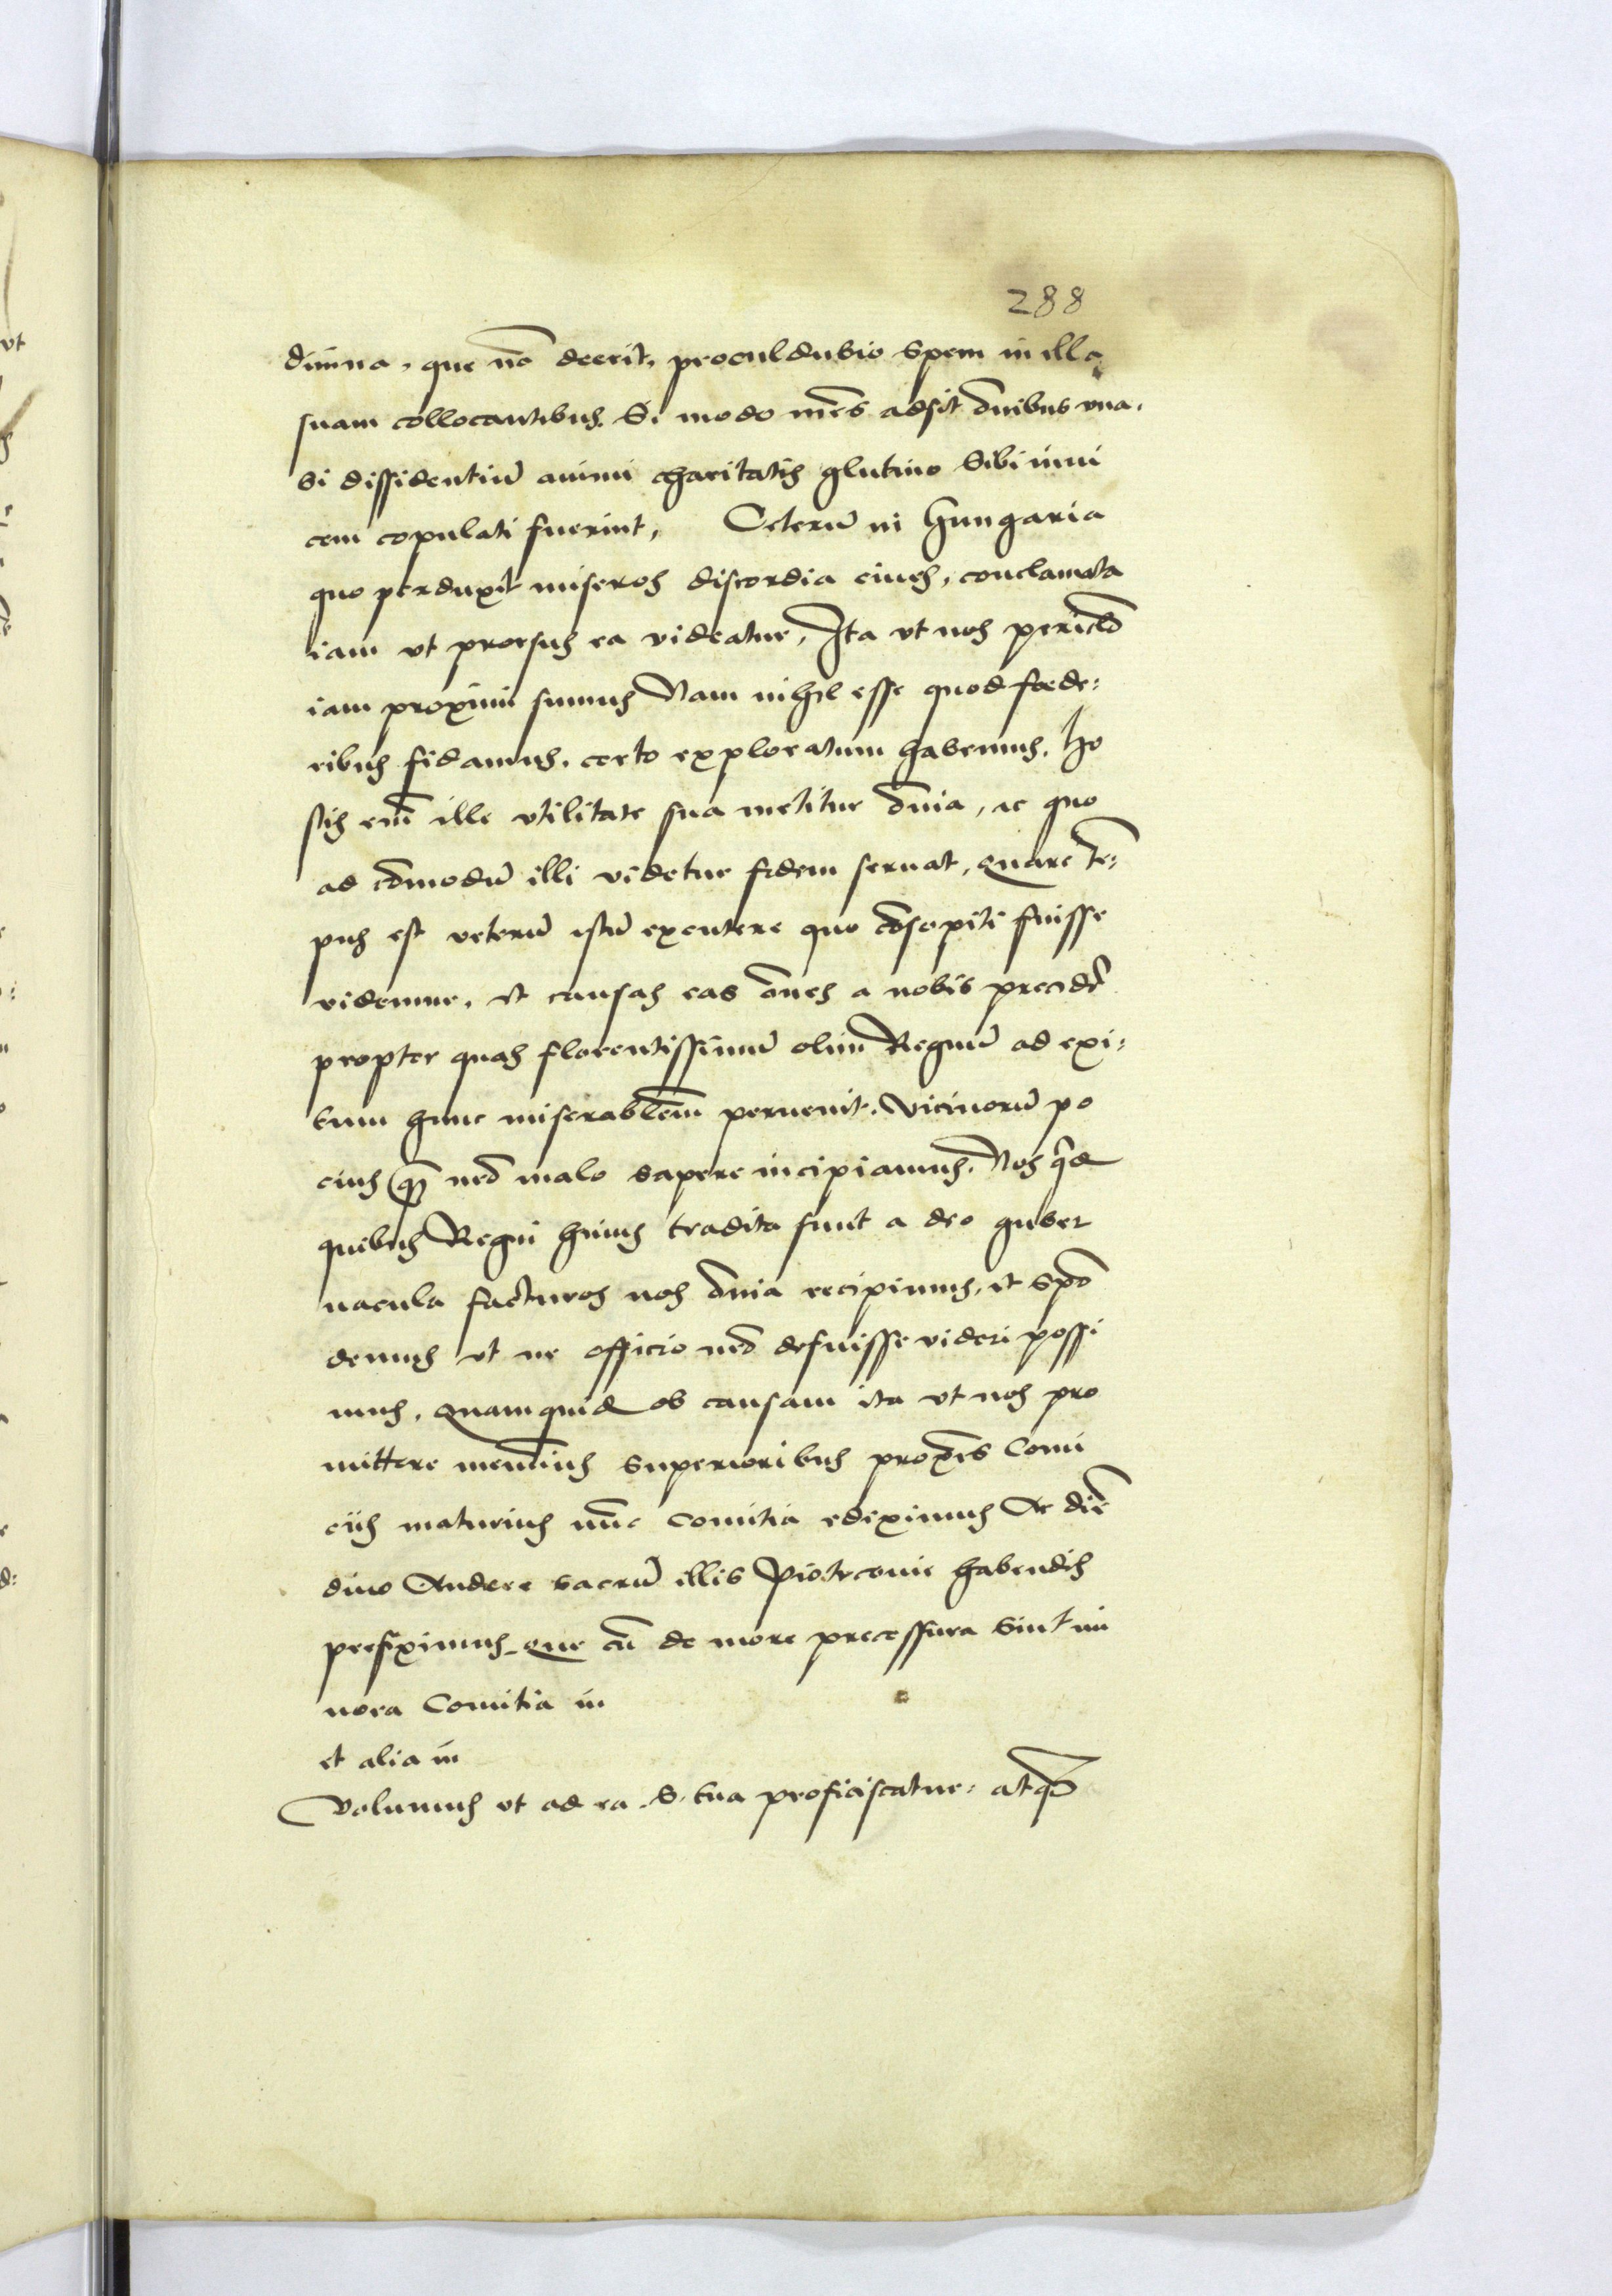 288
diuina, que nō deerit, proculdubio spem in illa
suam collocantibus. Si modo mēs adsit oīnibus vna.
Si dissidentiū animi charitatis glutino sibi inui
cem copulati fuerint, Ceterū in Hungaria
quo perduxit miseros discordia ciues, conclamata
iam vt prorsus ea videatur, Ita vt nos periclo
iam proximi sumus Nam nihil esse quod foede:
ribus fidamus, certo exploratum habemus, Ho
stis em̄ ille vtilitate sua metitur oīnia, ac quo
ad cōmodū illi videtur fidem seruat, Quare tē:
pus est veternū istū excutere quo cōsopiti fuisse
videmur, et causas eas oēs a nobis precidēr
propter quas florentissimū olim Regnū ad exi:
tum hunc miserablem peruenit. Vicinorū po
cius q̄ nrō malo sapere incipiamus. Nos q̄d
quibus Regni huius tradita sunt a deo guber
nacula facturos nos oīnia recipimus, et spō
demus vt ne officio nrō defuisse videri possi
mus, Quamquid ob causam ita vt nos pro
mittere meminimus superioribus proxīs Comi
ciis maturius nūc Comitia ediximus Ac diē
diuo Andree sacrū illis Piotrcouie habendis
prefiximus Que cū de more precessura sint mi
nora Comitia in
et alia in
Volumus vt ad ea S. tua proficiscatur. atq̄